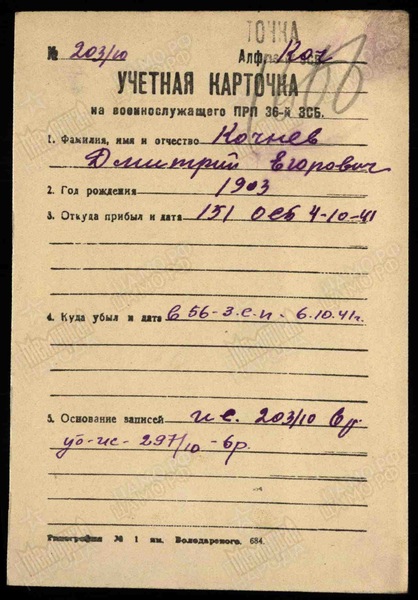 ТОЧКА
№ 203/10 Алф. Коч
УЧЕТНАЯ КАРТОЧКА
на военнослужащего ПРП 36-й ЗСБ.
1. Фамилия, имя и отчество Кочнев
Дмитрий Егорович
2. Год рождения 1903
3. Откуда прибыл и дата 151 ОСБ 4-10-41
4. Куда убыл и дата в 56-З.с.п. 6.10.41г.
5. Основание записей ис. 203/10 вр
уб-ис-297/10-бр.
Типография № 1 им. Володарского. 684.